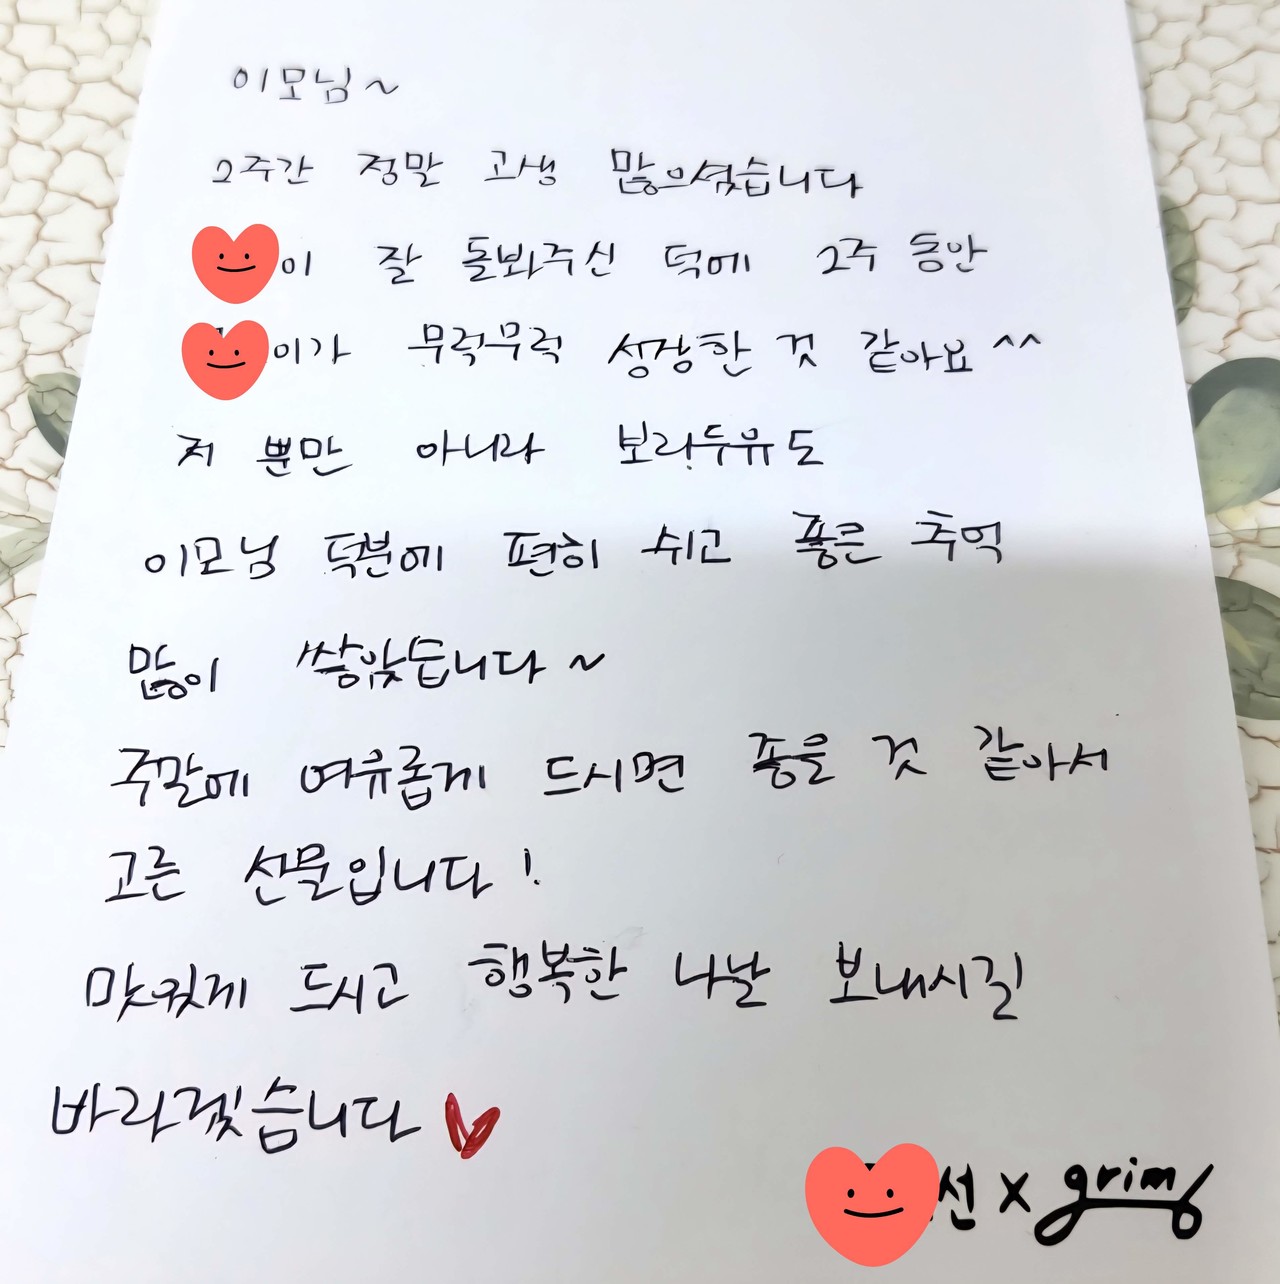 이모님~
2주간 정말 고생 많으셨습니다
이 잘 돌봐주신 덕에 2주 동안
이가 무럭무럭 성장한 것 같아요^^
저 뿐만 아니라 보라두유도
이모님 덕분에 편히 쉬고 좋은 추억
많이 쌓았습니다~
주말에 여유롭게 드시면 좋을 것 같아서
고른 선물입니다!
맛있게 드시고 행복한 나날 보내시길
바라겠습니다
선 x grim